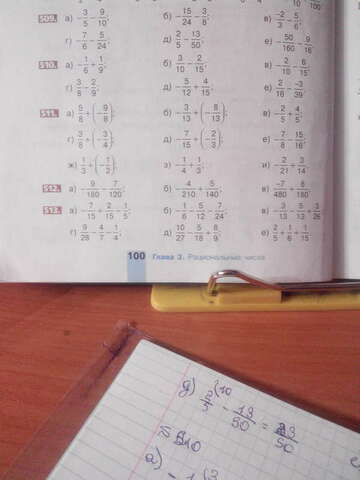 509. а) -3/5 - 9/10; б) -15/24 - 3/8; в) -2/3 - 5/6;
г) -7/6 - 5/24; д) 2/5 - 13/50; е) -50/160 - 9/16
510. а) -1/6 + 1/9; б) 3/10 - 2/15; в) -2/10 - 6/15;
г) 3/8 - 2/9; д) -5/12 + 4/15; е) 2/18 - -3/39
511. а) 5/8 + (-9/8); б) -3/13 + (-8/13); в) -2/5 + 4/5;
г) 3/8 + (-3/4); д) 7/15 + (-2/3); е) -7/8 - 15/16;
ж) 1/3 + (-1/2); з) -1/4 + 1/3; и) -2/21 + 3/14
512. а) 9/180 - 7/120; б) -4/210 + 5/140; в) -7/480 + 8/180
513. а) -7/15 + 2/15 - 1/5; б) -1/6 - 5/12 - 7/24; в) -3/13 - 5/13 - 3/26
г) 9/28 - 4/7 - 1/4; д) 10/27 - 5/18 + 8/9; е) 2/5 + 1/6 + 1/15
100 Глава 3. Рациональные числа
д)
13/50
510
а)